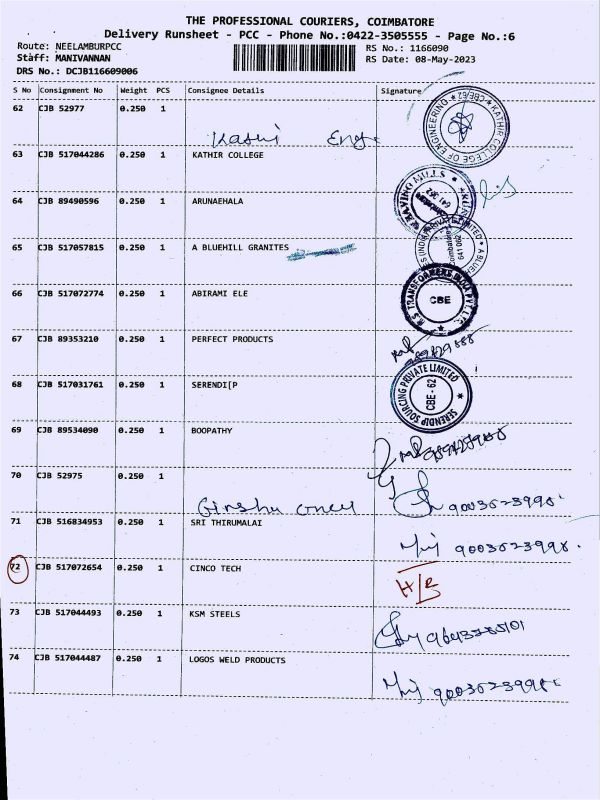 THE PROFESSIONAL COURIERS, COIMBATORE
Delivery Runsheet - PCC - Phone No.:0422-3505555 - Page No.:6
Route: NEELAMBURPCC RS No.: 1166090
Staff: MANIVANNAN RS Date: 08-May-2023
DRS No.: DCJB116609006
S No Consignment No Weight PCS Consignee Details Signature
62 CJB 52977 0.250 1
KATHIR COLLEGE OF ENGINEERING * CBE-62 *
63 CJB 517044286 0.250 1 KATHIR COLLEGE
64 CJB 89490596 0.250 1 ARUNAEHALA
65 CJB 517057815 0.250 1 A BLUEHILL GRANITES
66 CJB 517072774 0.250 1 ABIRAMI ELE
R.S. TRANSFORMERS INDIA PVT. LTD.
CBE
67 CJB 89353210 0.250 1 PERFECT PRODUCTS
68 CJB 517031761 0.250 1 SERENDI[P
SERENDIP SOURCING PRIVATE LIMITED
CBE - 62
69 CJB 89534090 0.250 1 BOOPATHY
70 CJB 52975 0.250 1
71 CJB 516834953 0.250 1 SRI THIRUMALAI
9003623998.
72 CJB 517072654 0.250 1 CINCO TECH
73 CJB 517044493 0.250 1 KSM STEELS
74 CJB 517044487 0.250 1 LOGOS WELD PRODUCTS